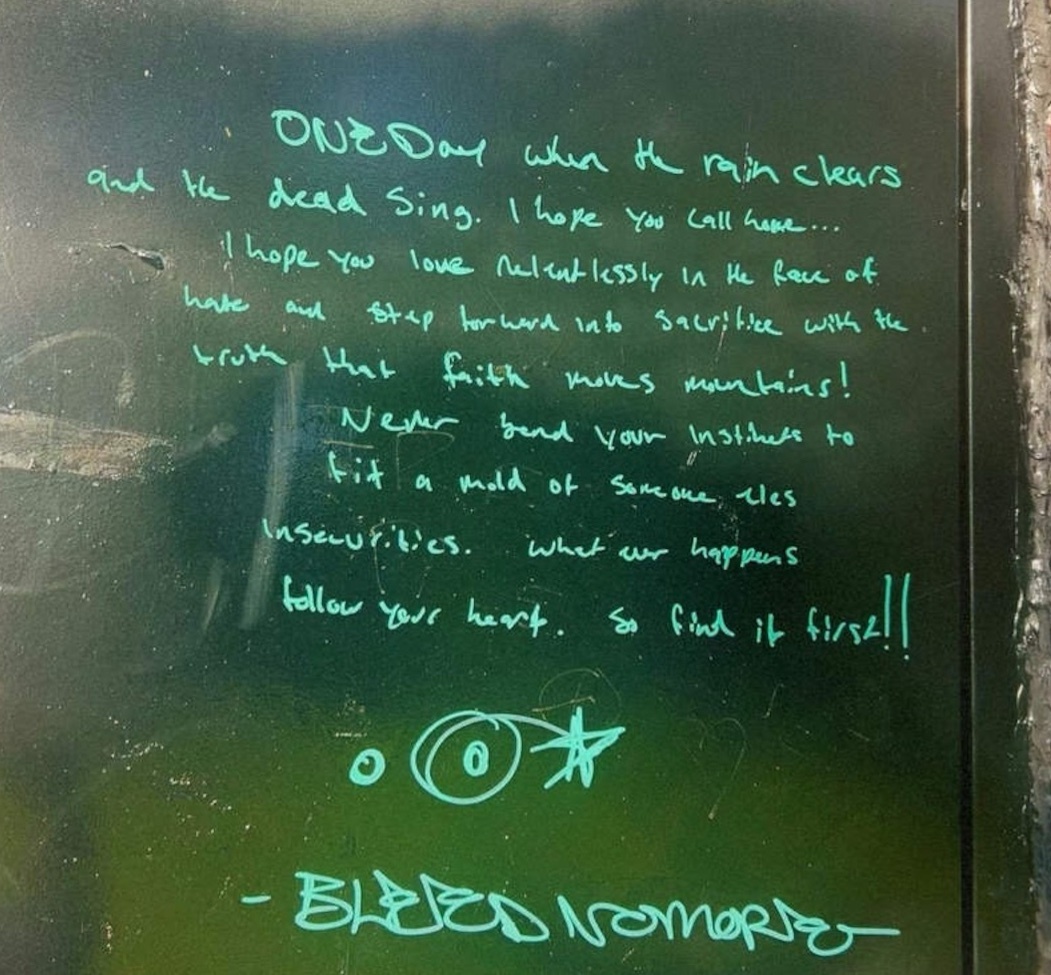 ONE Day when the rain clears
and the dead Sing. I hope you call home...
I hope you love relentlessly in the face of
hate and step forward into sacrifice with the
truth that faith moves mountains!
Never bend your instincts to
fit a mold of someone elses
insecurities. what ever happens
follow your heart. So find it first!!
- BLEED NOMORE -